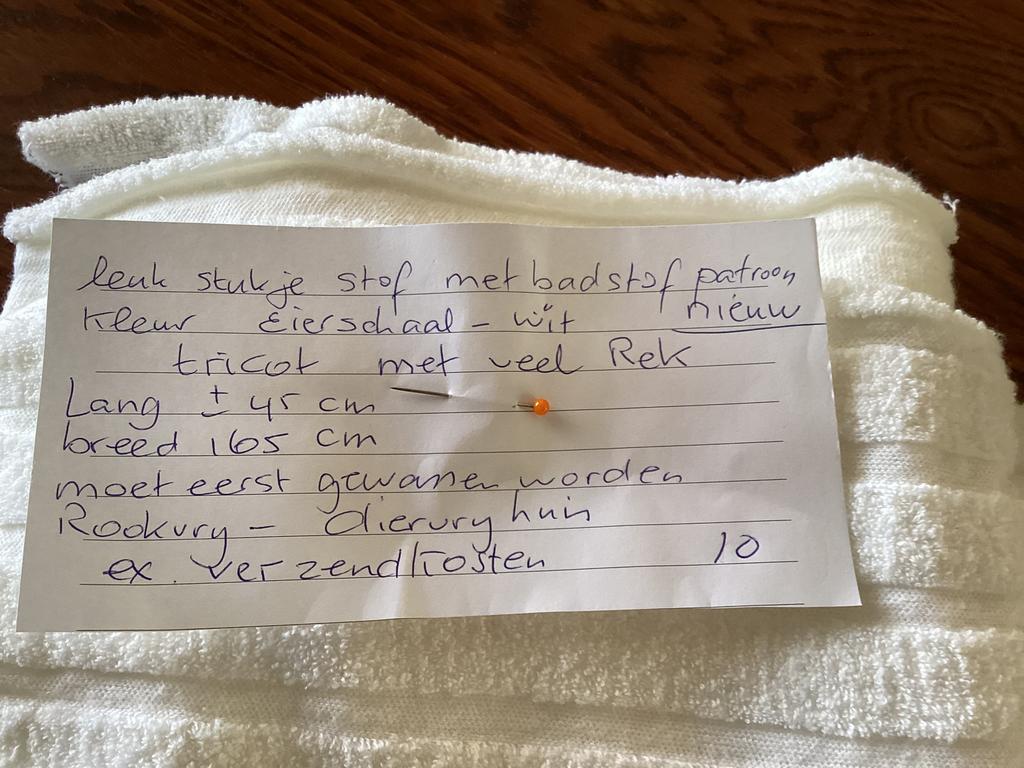 leuk stukje stof met badstof patroon
Kleur Eierschaal - wit nieuw
tricot met veel Rek
Lang ± 45 cm
breed 165 cm
moet eerst gewassen worden
Rookvry - diervry huis
ex. verzendkosten 10